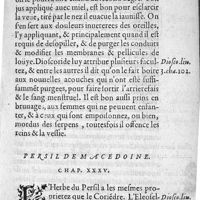 jus appliqué auec miel, est bon pour esclarcir
la veüe, tiré par le nez il euacue la iaunisse. On
s'en sert aux douleurs inueterees des oreilles,
l'y appliquant, & principalement quand il est
requis de desopiller, & de purger les conduits
& modifier les membranes & pellicules de
loüye. Dioscoride luy attribue plusieurs facul- Diosco.liu.
tez, & entre les autres il dit qu'on le fait boire 3.cha.102.
aux nouuelles accouchées qui n'ont esté suffi-
samment purgees, pour faire sortir l'arrierefais
& le sang menstruel. Il est bon aussi prins en
breuuage, aux femmes qui ne peuuent enfan-
ter, & à ceux qui sont empoisonnez, ou bien,
mords des serpens, toutesfois il offence les
reins & la vessie.
PERSIL DE MACEDOINE.
CHAP. XXXV.
L'Herbe du Persil a les mesmes pro-
prietez que le Coriédre. L'Eleosel- Diosco.liu.